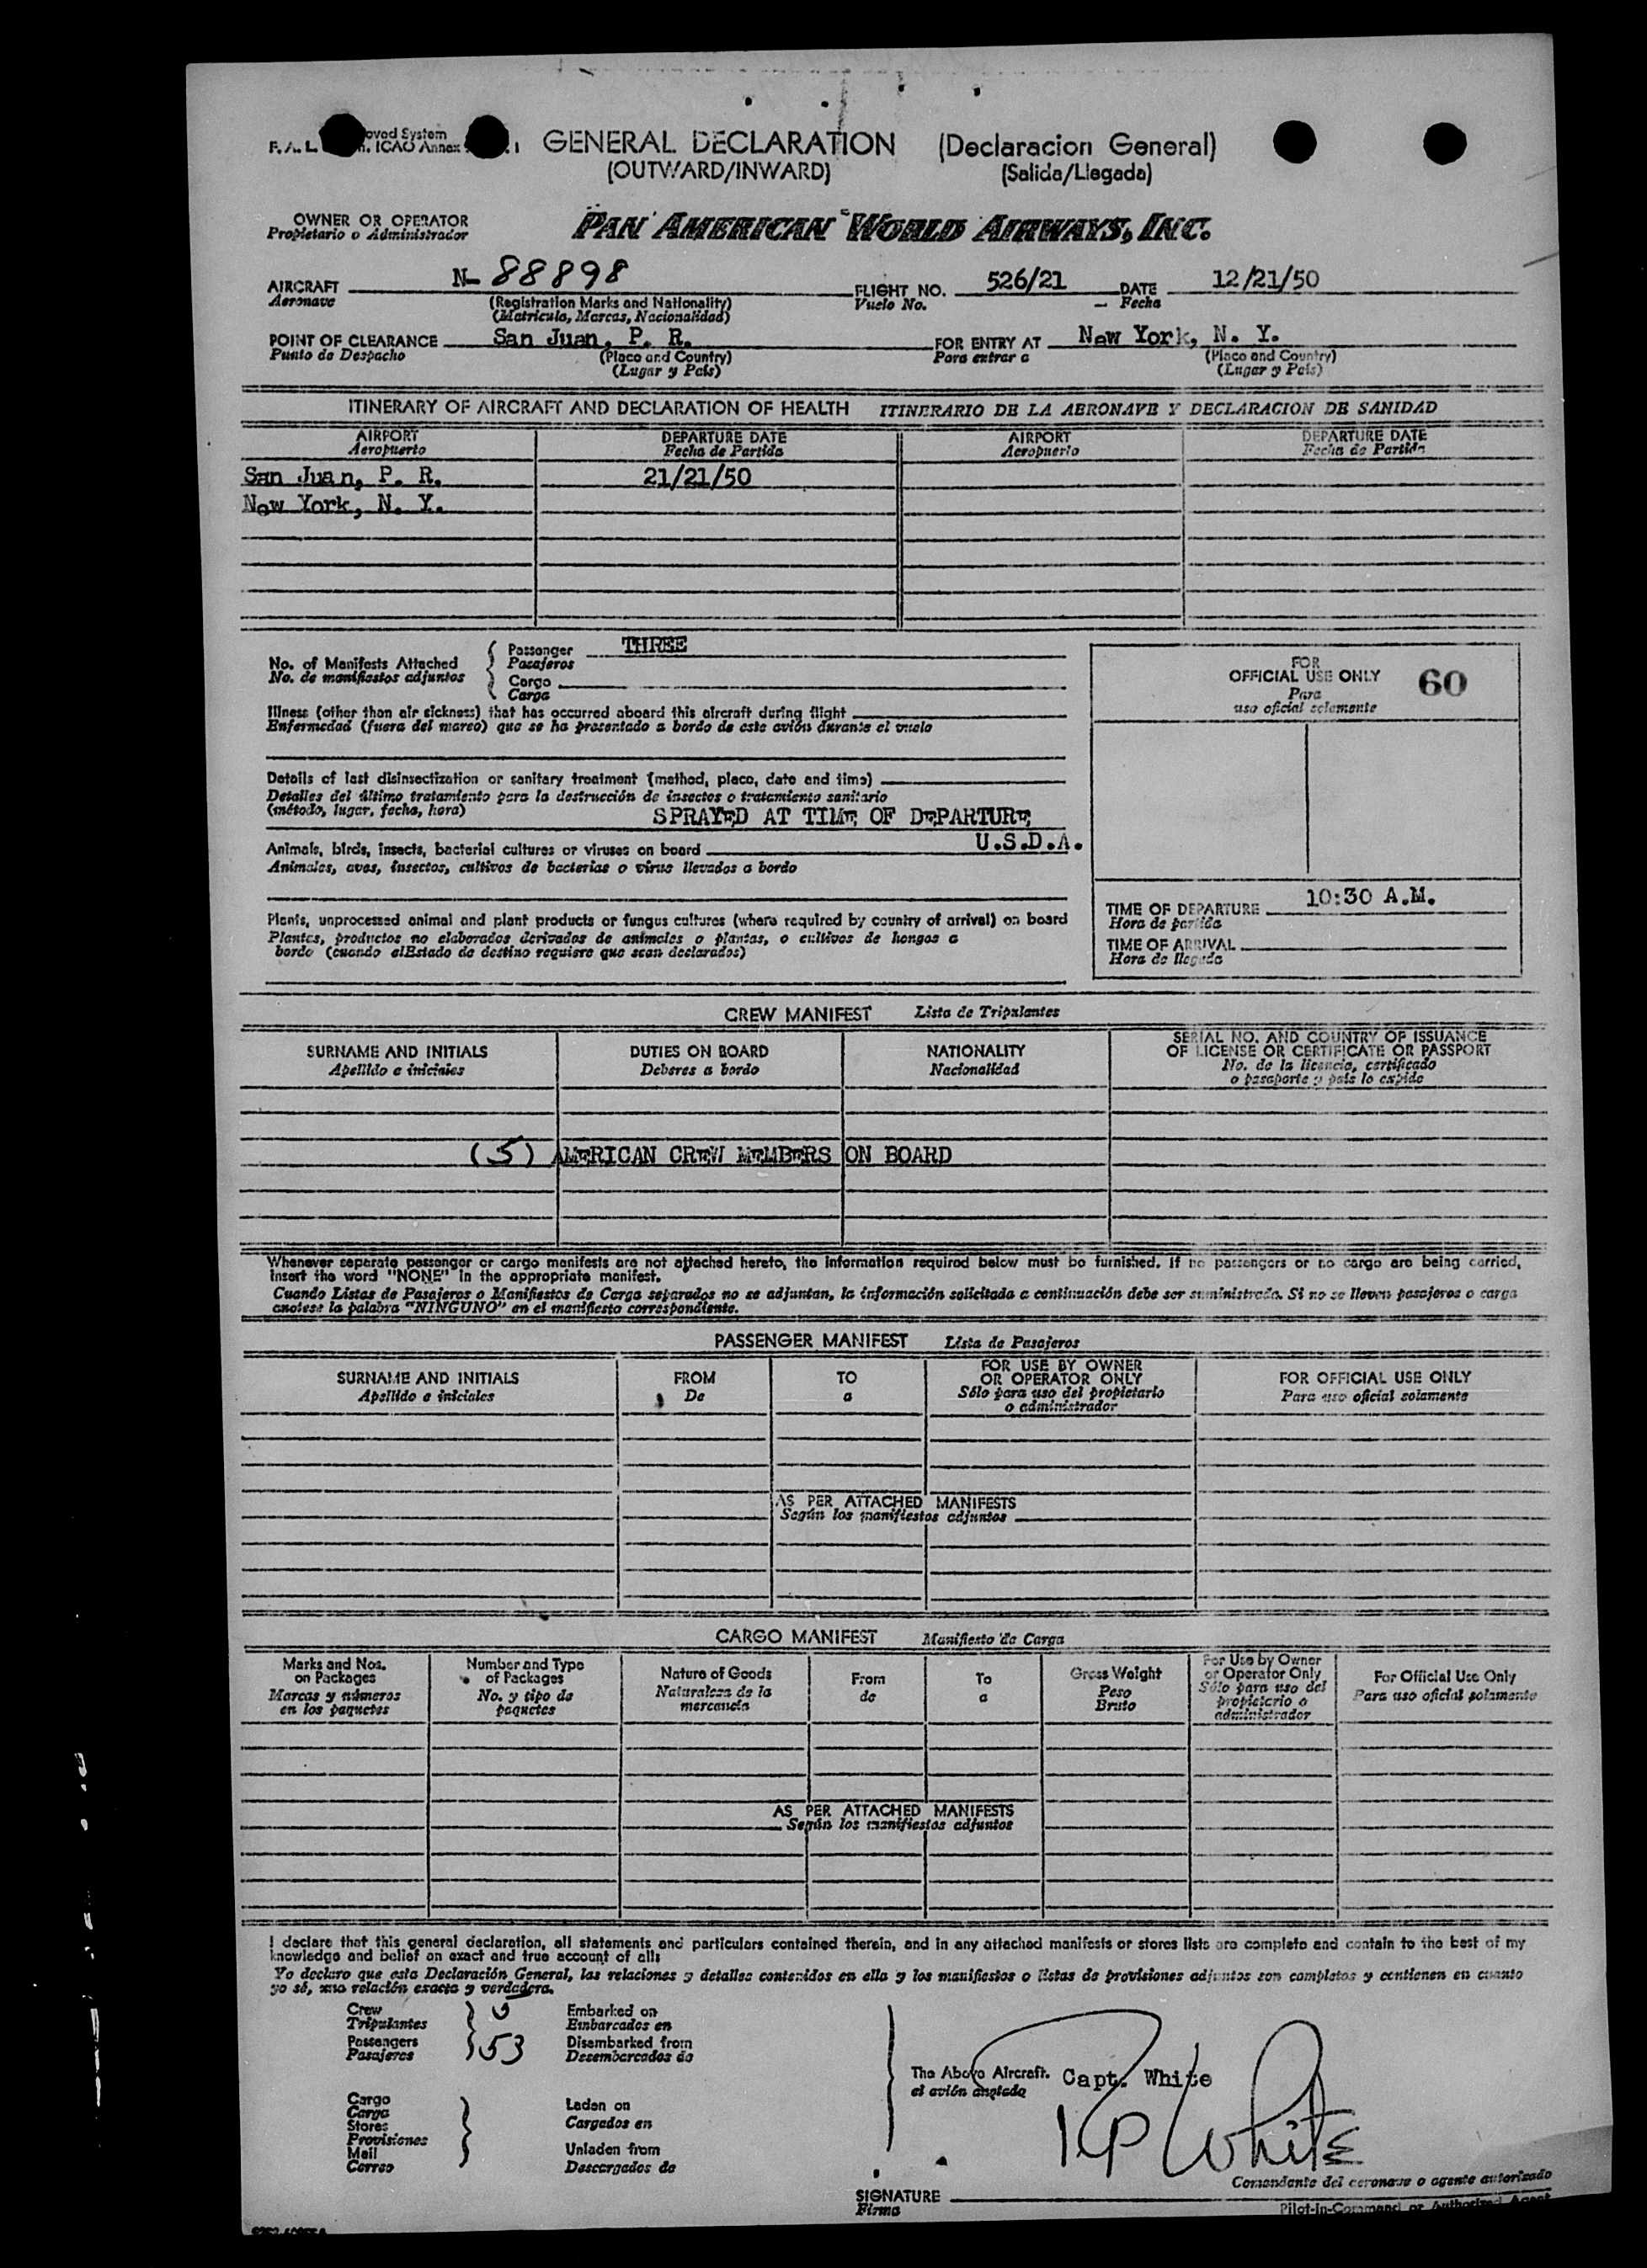 F. A. L. oved System
ICAO Annex 1
GENERAL DECLARATION (Declaracion General)
(OUTWARD/INWARD) (Salida/Llegada)
OWNER OR OPERATOR
Propietario o Administrador
PAN AMERICAN WORLD AIRWAYS, INC.
AIRCRAFT N- 88898 FLIGHT NO. 526/21 DATE 12/21/50
Aeronave (Registration Marks and Nationality) Vuelo No. Fecha
(Matricula, Marcas, Nacionalidad)
POINT OF CLEARANCE San Juan, P. R. FOR ENTRY AT New York, N. Y.
Punto de Despacho (Place and Country) Para entrar a (Place and Country)
(Lugar y Pais) (Lugar y Pais)
ITINERARY OF AIRCRAFT AND DECLARATION OF HEALTH ITINERARIO DE LA AERONAVE Y DECLARACION DE SANIDAD
AIRPORT DEPARTURE DATE AIRPORT DEPARTURE DATE
Aeropuerto Fecha de Partida Aeropuerto Fecha de Partida
San Juan, P. R. 21/21/50
New York, N. Y.
No. of Manifests Attached
No. de manifiestos adjuntos
Passenger THREE
Pasajeros
Cargo
Carga
FOR
OFFICIAL USE ONLY 60
Para
uso oficial solamente
Illness (other than air sickness) that has occurred aboard this aircraft during flight
Enfermedad (fuera del mareo) que se ha presentado a bordo de este avión durante el vuelo
Details of last disinsectization or sanitary treatment (method, place, date and time)
Detalles del último tratamiento para la destrucción de insectos o tratamiento sanitario
(método, lugar, fecha, hora) SPRAYED AT TIME OF DEPARTURE
U.S.D.A.
Animals, birds, insects, bacterial cultures or viruses on board
Animales, aves, insectos, cultivos de bacterias o virus llevados a bordo
Plants, unprocessed animal and plant products or fungus cultures (where required by country of arrival) on board
Plantas, productos no elaborados derivados de animales o plantas, o cultivos de hongos a
bordo (cuando elEstado de destino requiere que sean declarados)
TIME OF DEPARTURE 10:30 A.M.
Hora de partida
TIME OF ARRIVAL
Hora de llegada
CREW MANIFEST Lista de Tripulantes
SURNAME AND INITIALS DUTIES ON BOARD NATIONALITY SERIAL NO. AND COUNTRY OF ISSUANCE
OF LICENSE OR CERTIFICATE OR PASSPORT
Apellido e iniciales Deberes a bordo Nacionalidad No. de la licencia, certificado
o pasaporte y pais lo expide
(5) AMERICAN CREW MEMBERS ON BOARD
Whenever separate passenger or cargo manifests are not attached hereto, the information required below must be furnished. If no passengers or no cargo are being carried,
insert the word "NONE" in the appropriate manifest.
Cuando Listas de Pasajeros o Manifiestos de Carga separados no se adjuntan, la información solicitada a continuación debe ser suministrada. Si no se lleven pasajeros o carga
anotese la palabra "NINGUNO" en el manifiesto correspondiente.
PASSENGER MANIFEST Lista de Pasajeros
SURNAME AND INITIALS FROM TO FOR USE BY OWNER
OR OPERATOR ONLY FOR OFFICIAL USE ONLY
Apellido e iniciales De a Sólo para uso del propietario
o administrador Para uso oficial solamente
AS PER ATTACHED MANIFESTS
Según los manifiestos adjuntos
CARGO MANIFEST Manifiesto de Carga
Marks and Nos.
on Packages
Marcas y números
en los paquetes
Number and Type
of Packages
No. y tipo de
paquetes
Nature of Goods
Naturaleza de la
mercancía
From
de
To
a
Gross Weight
Peso
Bruto
For Use by Owner
or Operator Only
Sólo para uso del
propietario o
administrador
For Official Use Only
Para uso oficial solamente
AS PER ATTACHED MANIFESTS
Según los manifiestos adjuntos
I declare that this general declaration, all statements and particulars contained therein, and in any attached manifests or stores lists are complete and contain to the best of my
knowledge and belief an exact and true account of all:
Yo declaro que esta Declaración General, las relaciones y detalles contenidos en ella y los manifiestos o listas de provisiones adjuntos son completos y contienen en cuanto
yo sé, una relación exacta y verdadera.
Crew 5 Embarked on
Tripulantes Embarcados en
Passengers 53 Disembarked from
Pasajeros Desembarcados de
The Above Aircraft. Capt. White
el avión anotado
Cargo
Carga
Stores
Provisiones
Mail
Correo
Laden on
Cargados en
Unladen from
Descargados de
RP White
Comandante del aeronave o agente autorizado
SIGNATURE
Firma
Pilot-in-Command or Authorized Agent